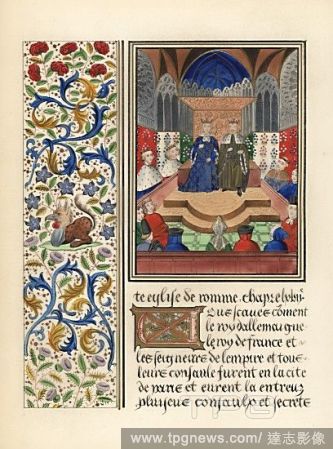 te eglise de romme. chapitre
ous scaues cōment
le roy dallemaigne
le roy de france et
les seigneurs de lempire et tous
leurs consaulx furent en la cite
de et eurent la entreux
plusieurs consaulx et secrets
TPG
www.tpgnews.com/達志影像